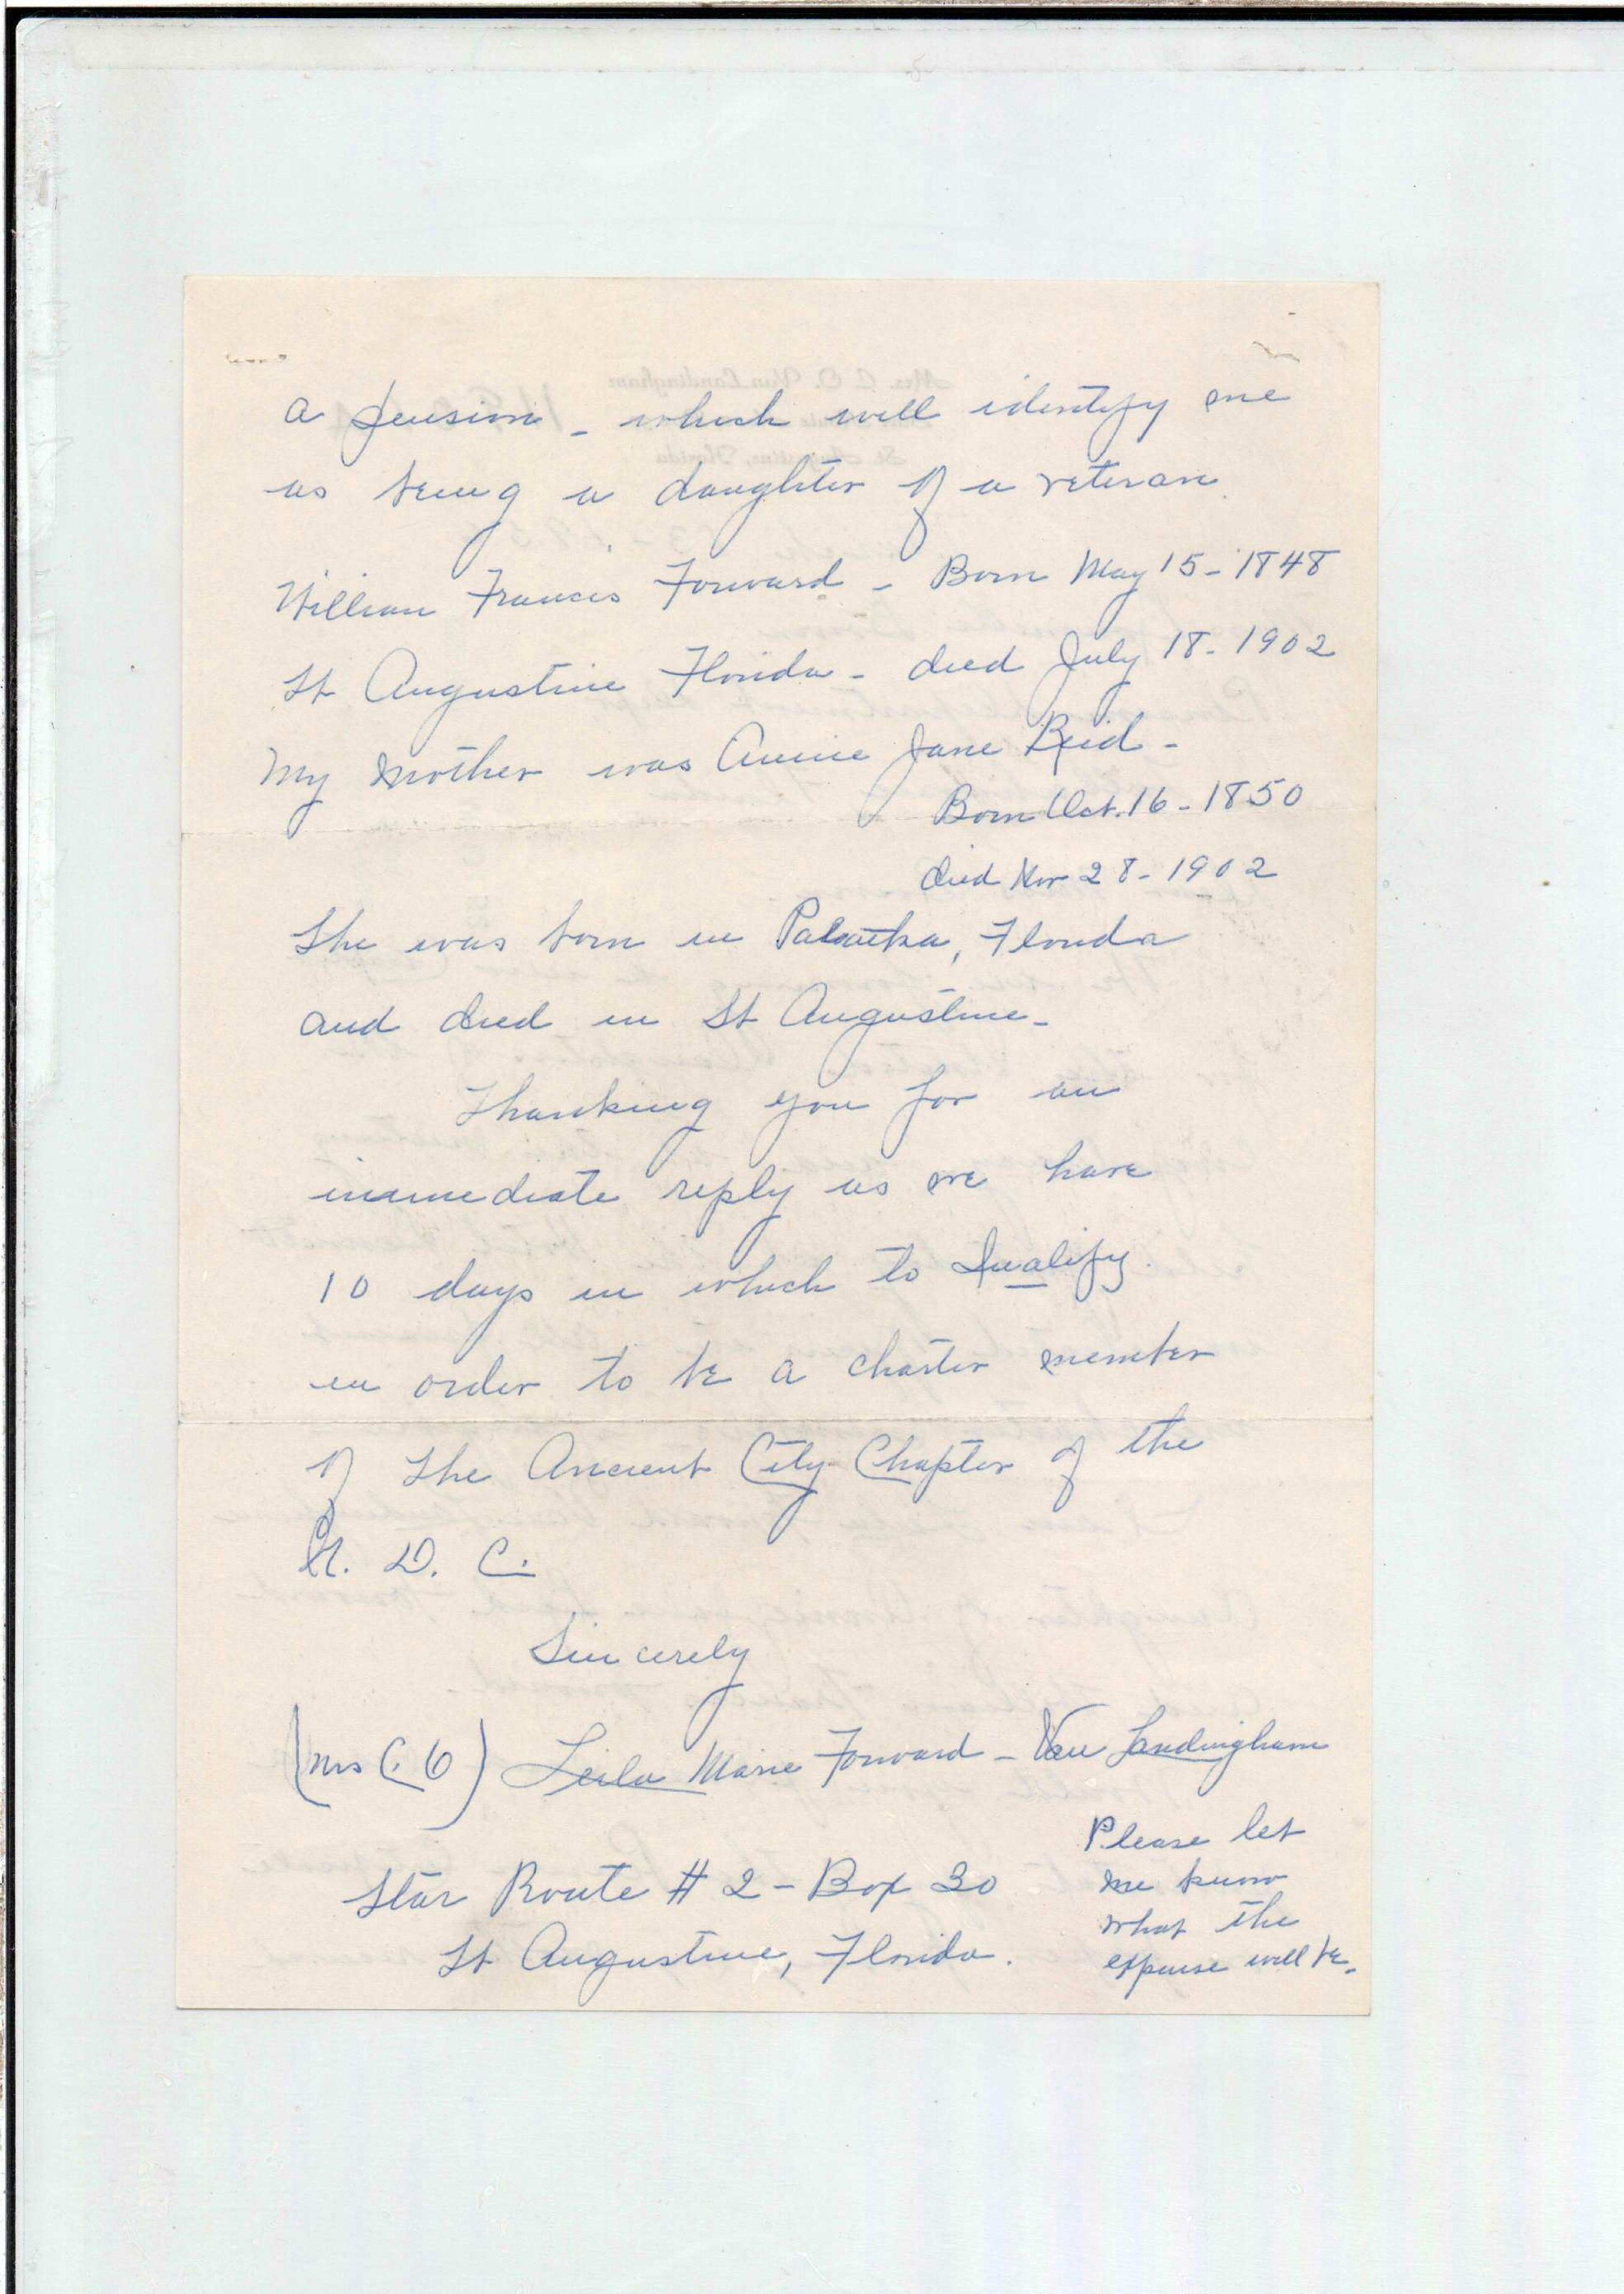 a pension - which will identify me
as being a daughter of a veteran.
William Francis Forward - Born May 15 - 1848
St Augustine Florida - died July 18 - 1902
My mother was Annie Jane Reid -
Born Oct. 16 - 1850
died Nov 28 - 1902
She was born in Palatka, Florida
and died in St Augustine -
Thanking you for an
immediate reply as we have
10 days in which to Qualify.
in order to be a charter member
of the Ancient City Chapter of the
U. D. C.
Sincerely
(Mrs C. O) Leila Marie Forward - Van Landingham
Star Route # 2 - Box 30
St Augustine, Florida.
Please let
me know
what the
expense will be.